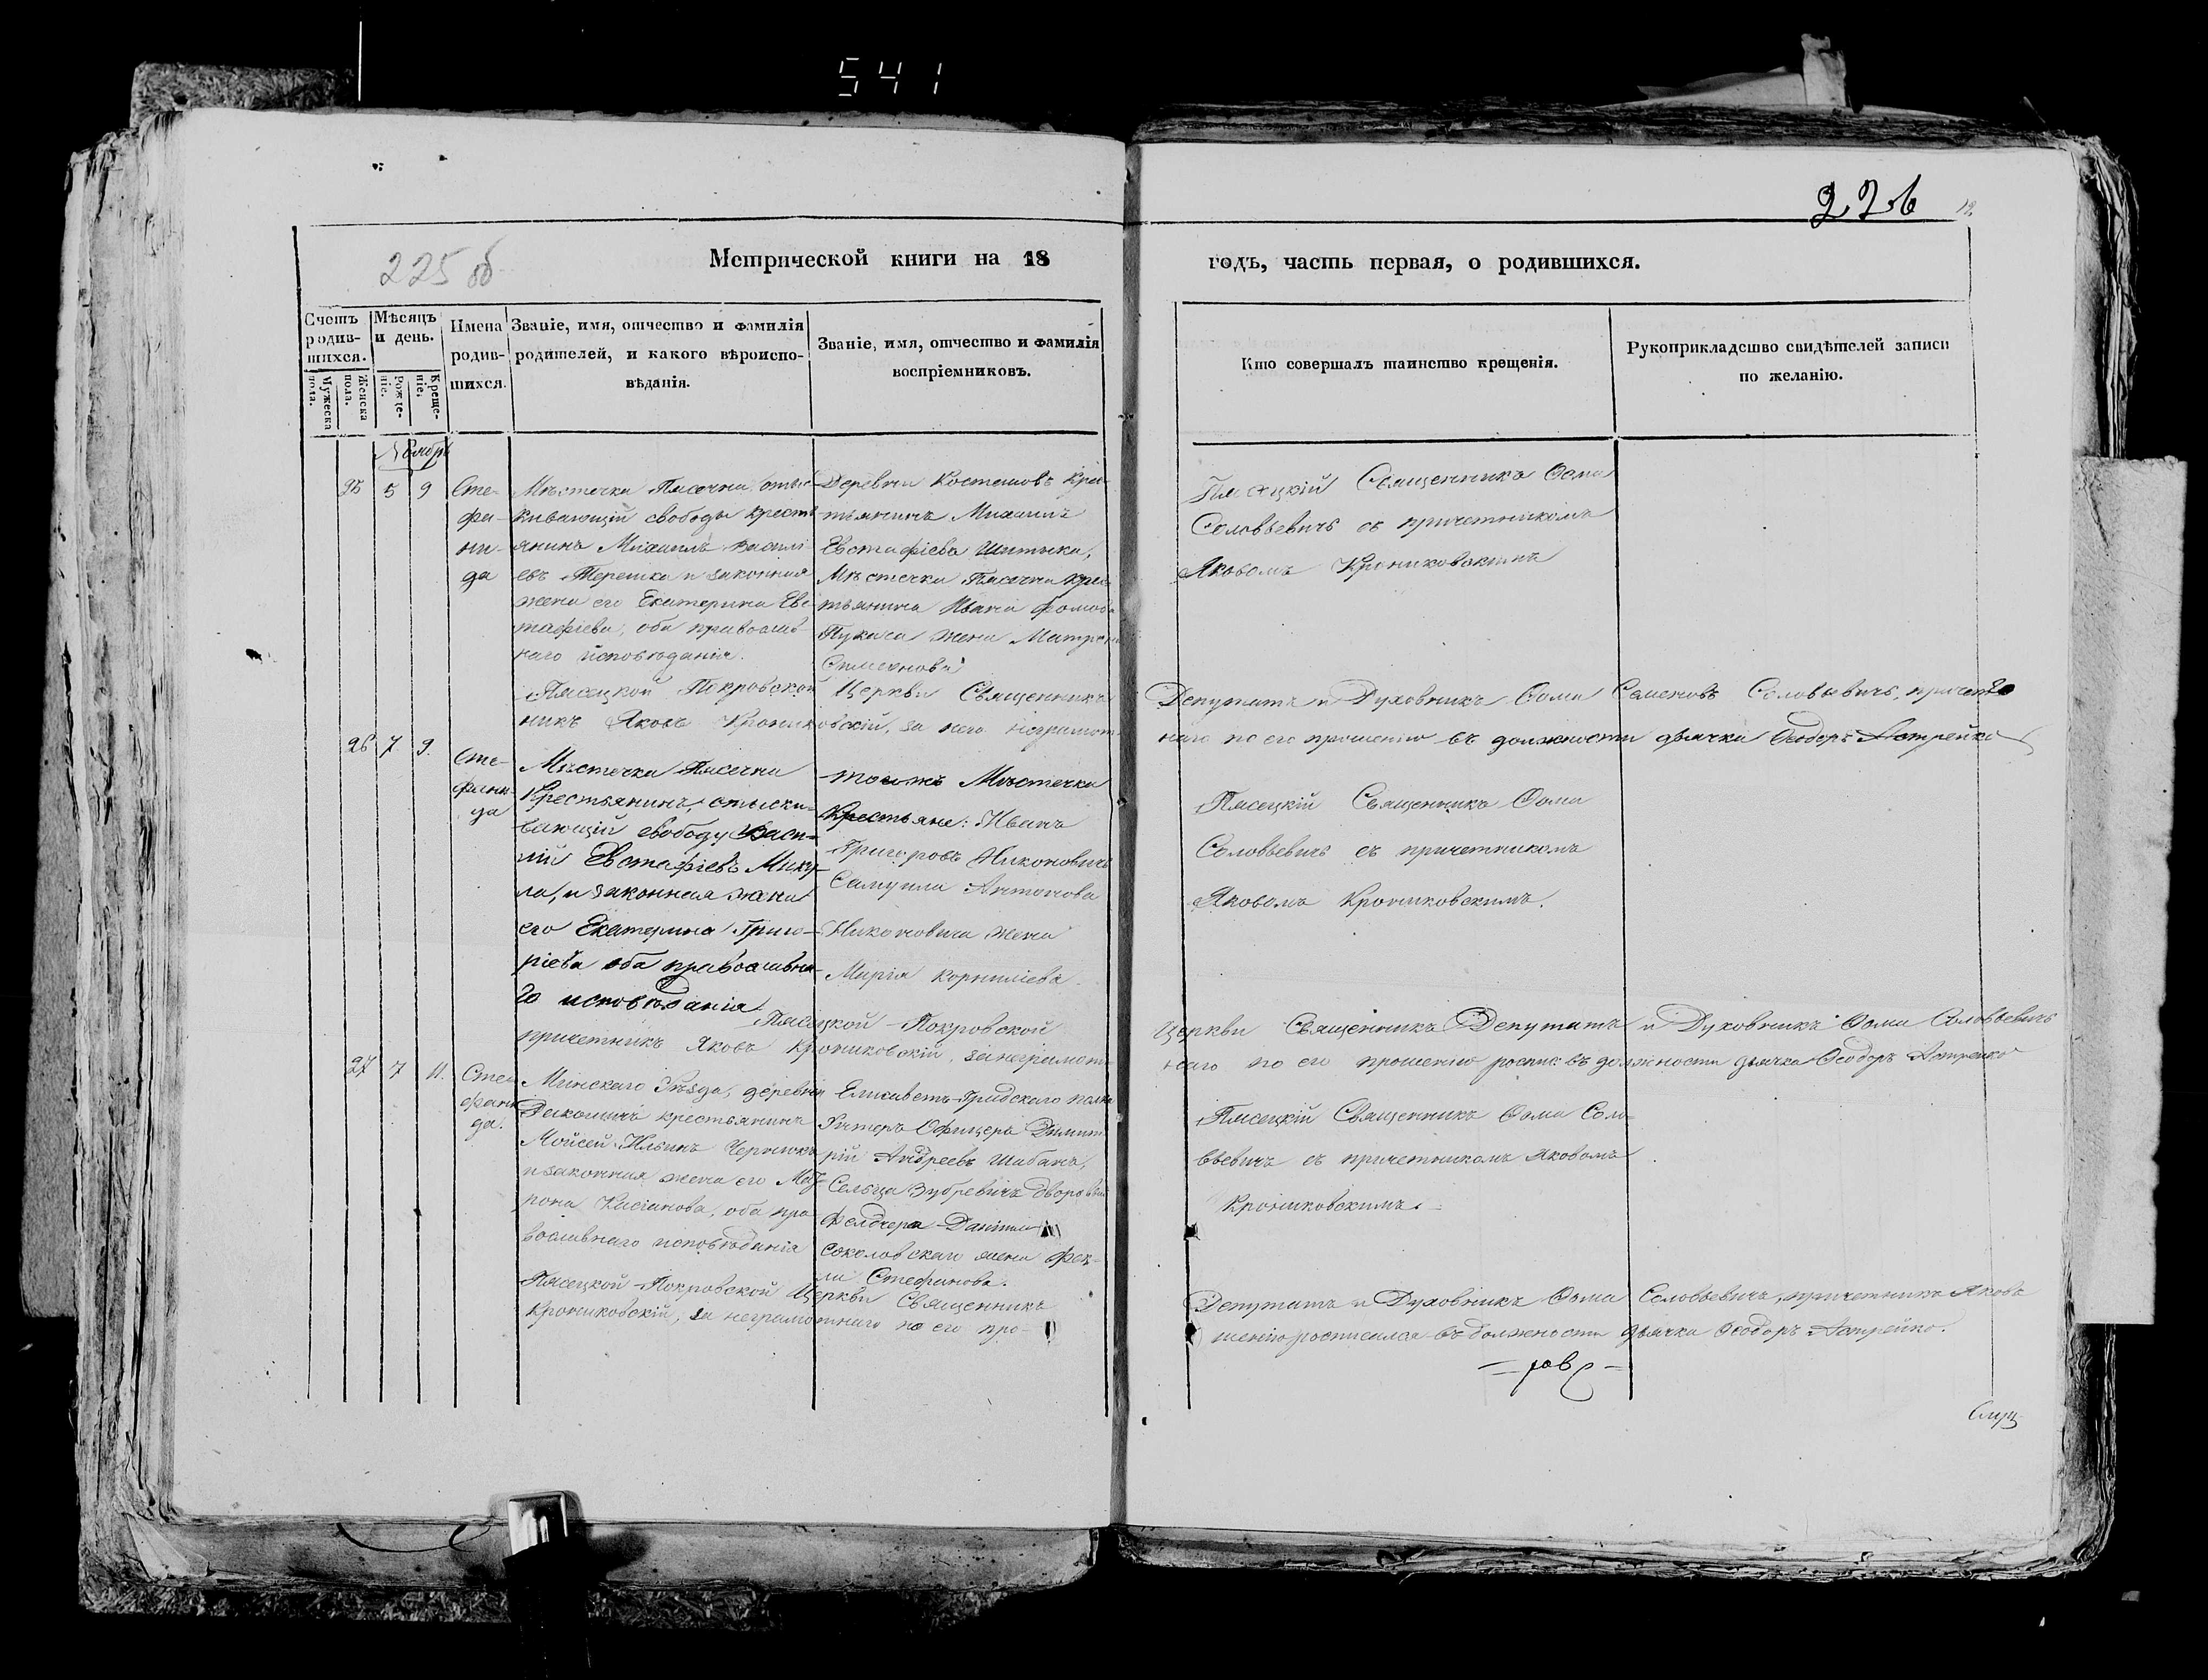 541
226
12
225 об
Метрической книги на 18
годъ, часть первая, о родившихся.
Счетъ родив-шихся.
Мужеска пола.
Женска пола.
Мѣсяцъ и день.
Рожде-ніе.
Креще-ніе.
Имена родив-шихся.
Званіе, имя, отчество и фамилія
родителей, и какого вѣроиспо-
вѣданія.
Званіе, имя, отчество и фамилія
воспріемниковъ.
Кто совершалъ таинство крещенія.
Рукоприкладство свидѣтелей записи
по желанію.
Ноябрь
25 5 9
Сте-
фа-
ни-
да
Мѣстечка Пясечна отыс-
кивающій свободы крестъ-
янинъ Михаилъ Василі-
евъ Терешка и законная
жена его Екатерина Евс-
тафіева, оба православ-
наго исповѣданія.
Деревни Костешовъ крес-
тьянинъ Михаилъ
Евстафіевъ
Мѣстечка Пясечна крес-
тьянина Ивана Фомова
жена Матрона
Симеонова
Пясецкій Священникъ Ѳома
Соловьевичъ съ причетникомъ
Яковомъ Крониковскимъ
Пясецкой Покровской Церкви Священникъ Депутатъ и Духовникъ Ѳома Семеновъ Соловьевичъ, причет-
никъ Яковъ Крониковскій, за него неграмот-наго по его прошенію въ должности дьячка Ѳеодоръ Астрейко
26 7 9.
Сте-
фани-
да
Мѣстечка Пясечна
Крестьянинъ, отыски-
вающій свободу Васи-
лій Евстафіевъ Мику-
ла, и законная жена
его Екатерина Григо-
ріева оба православна-
го исповѣданія
тогожъ Мѣстечка
Крестьяне: Иванъ
Григоровъ Никоновичъ
Самуила Антонова
Никоновича жена
Марія Корниліева.
Пясецкій Священникъ Ѳома
Соловьевичъ съ причетникомъ
Яковомъ Крониковскимъ.
Пясецкой Покровской Церкви Священникъ Депутатъ и Духовникъ Ѳома Соловьевичъ
причетникъ Яковъ Крониковскій, за неграмот-наго по его прошенію роспис: въ должности дьячка Ѳеодоръ Астрейко
27 7 11.
Сте-
фани
да.
Минскаго Уѣзда, деревни
крестьянинъ
Мойсей Ильинъ Чернюкъ
и законная жена его Мат-
рона Касіанова, оба пра-
вославнаго исповѣданія
Елисавет-Градскаго полка
Унтеръ Офицеръ Димит-
рій Андреевъ Шабанъ,
Сельца Зубревичъ дворовый
Фелдчера Даніила
Соколовскаго жена Фек-
ла Стефанова.
Пясецкій Священникъ Ѳома Соло-
вьевичъ съ причетникомъ Яковомъ
Крониковскимъ.
Пясецкой Покровской Церкви Священникъ Депутатъ и Духовникъ Ѳома Соловьевичъ, причетникъ Яковъ
Крониковскій, за неграмотнаго по его про-шенію росписался въ должности дьячка Ѳеодоръ Астрейко.